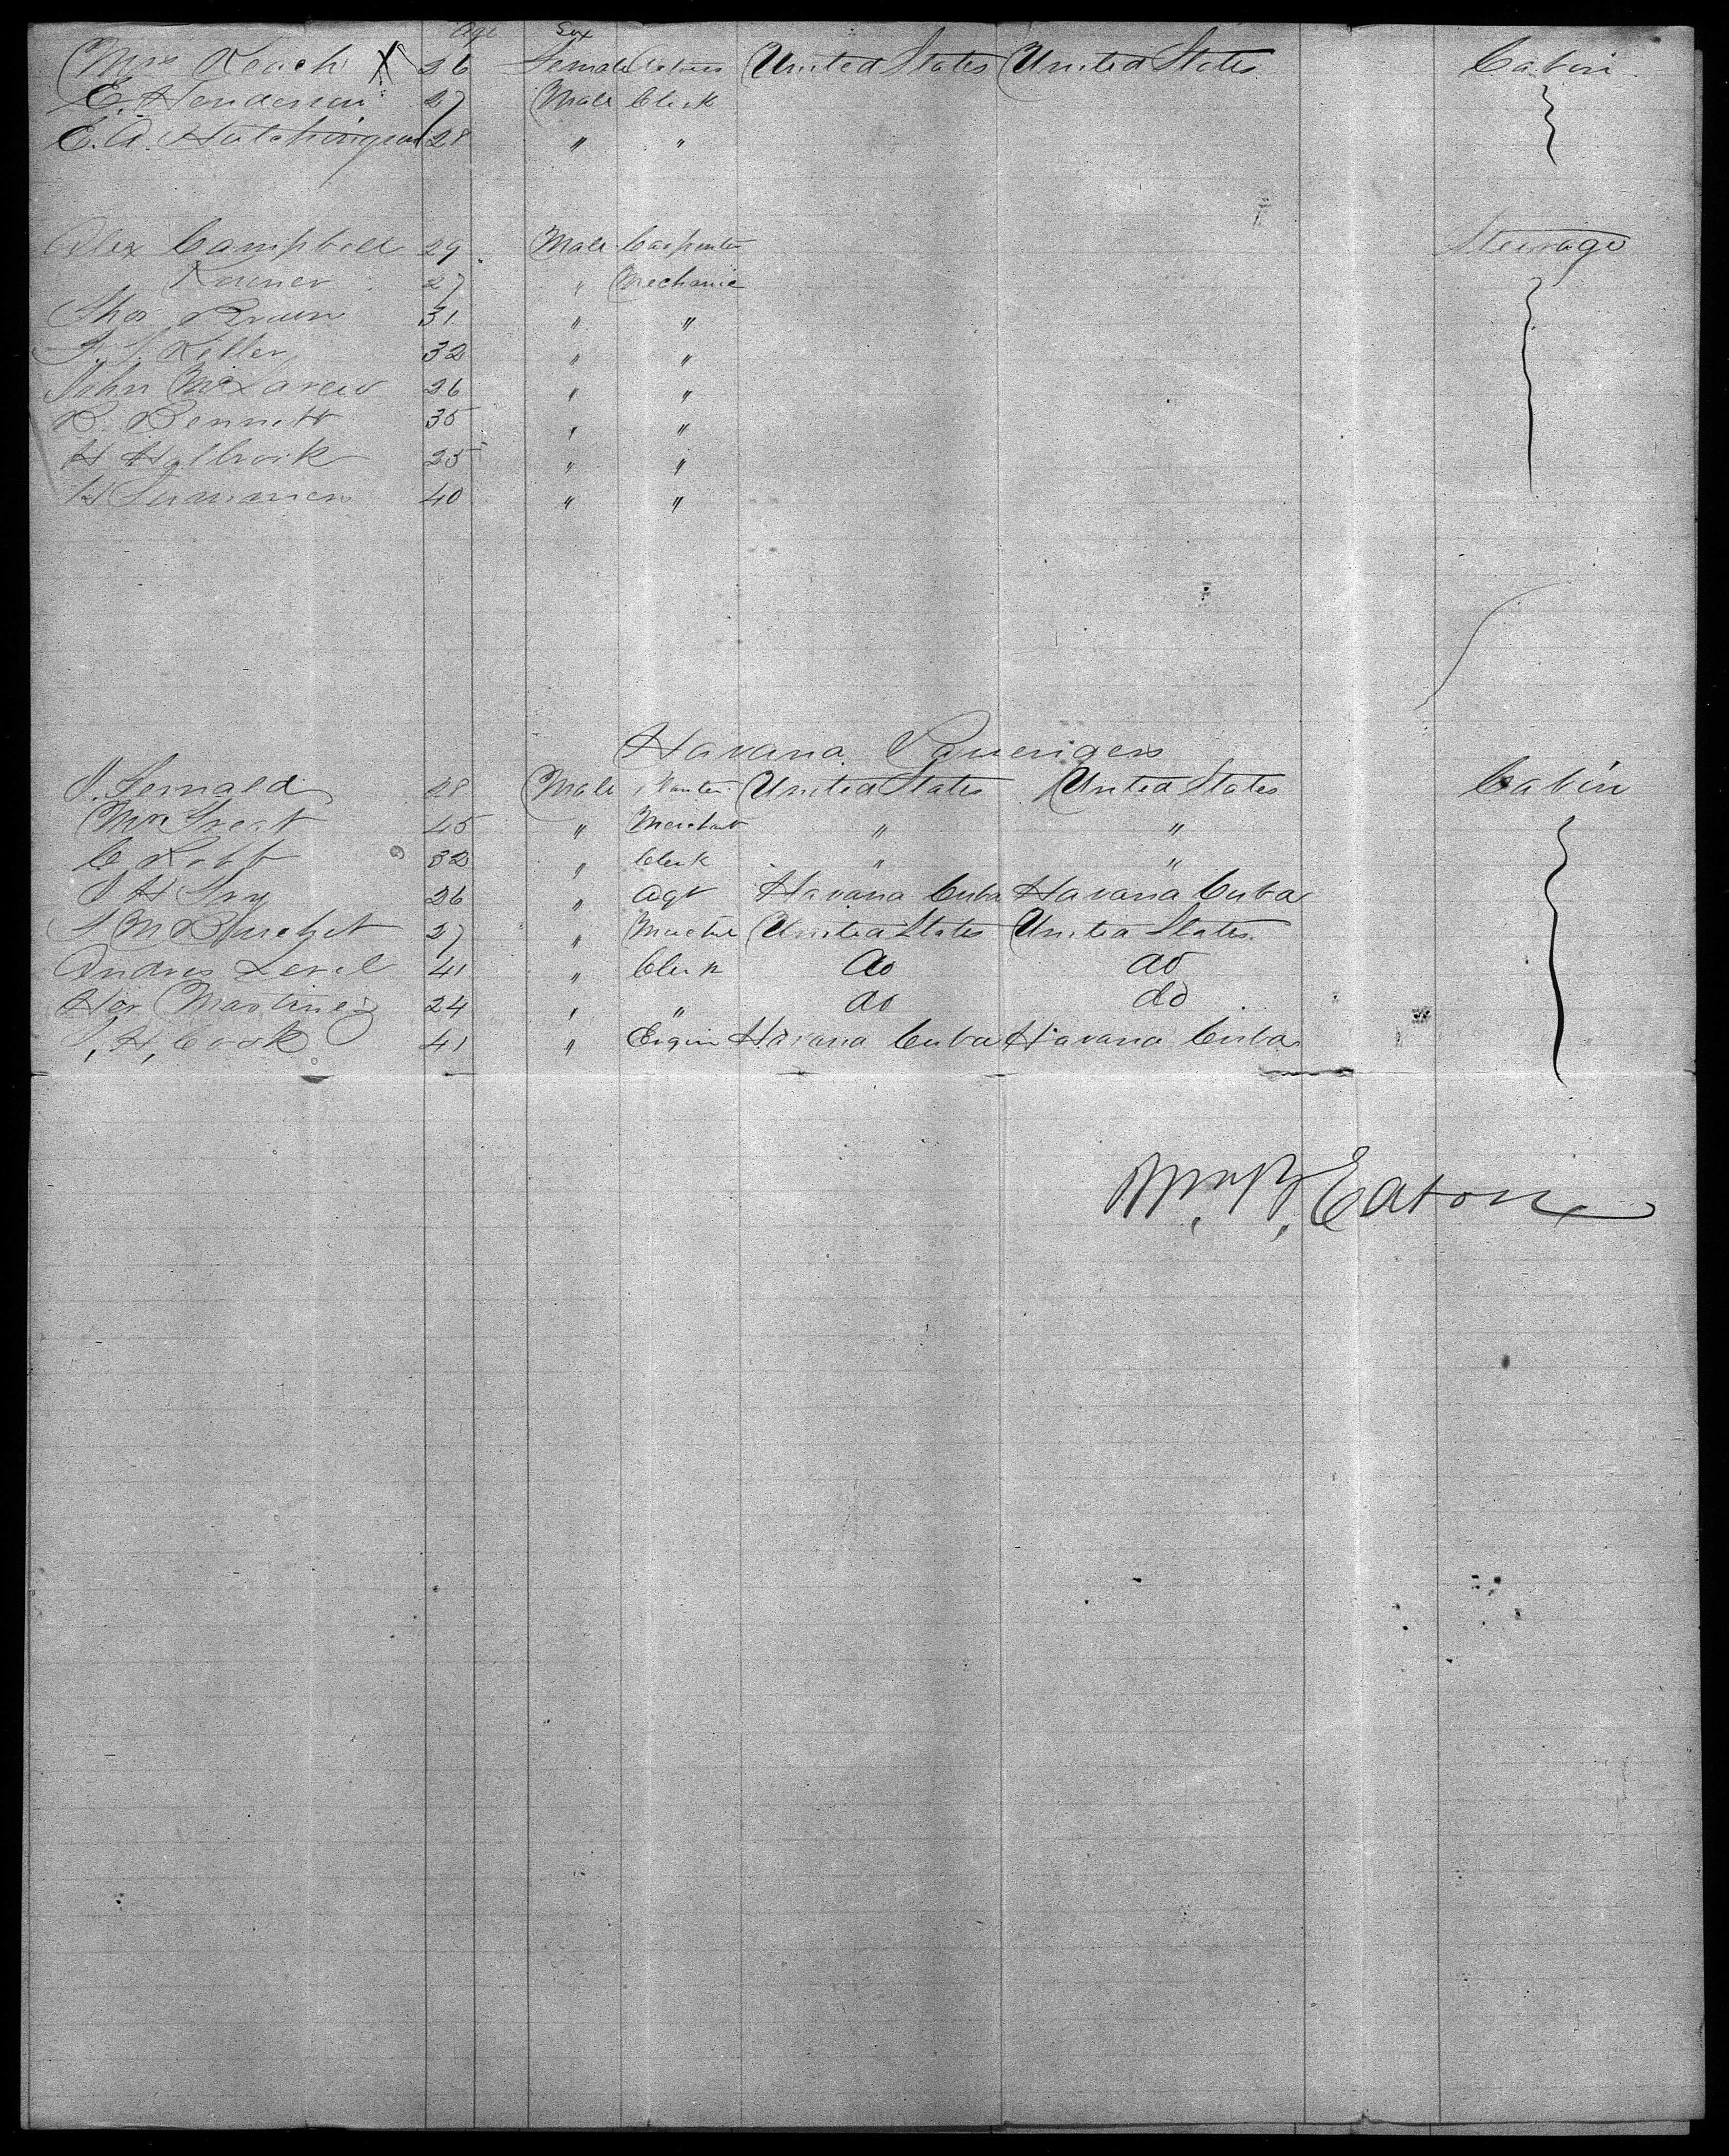 Age Sex
Mrs Keach X 26 Female Actress United States United States Cabin
E. Henderson 27 Male Clerk
E. A. Hutchingson 28 " "
Alex Campbell 29 Male Carpenter Steerage
27 " Mechanic
Thos Brown 31 " "
Keller 32 " "
John McLaren 26 " "
B. Bennett 35 " "
H Holbrook 25 " "
H 40 " "
Havana Passengers
J. Fernald 28 Male Planter United States United States Cabin
Mr Treat 45 " Merchant " "
C Robb 32 " Clerk " "
J H 26 " Agt Havana Cuba Havana Cuba
27 " United States United States
Andres 41 " Clerk do do
Martinez 24 " " do do
J. H. Cook 41 " Engin Havana Cuba Havana Cuba
Wm. B. Eaton